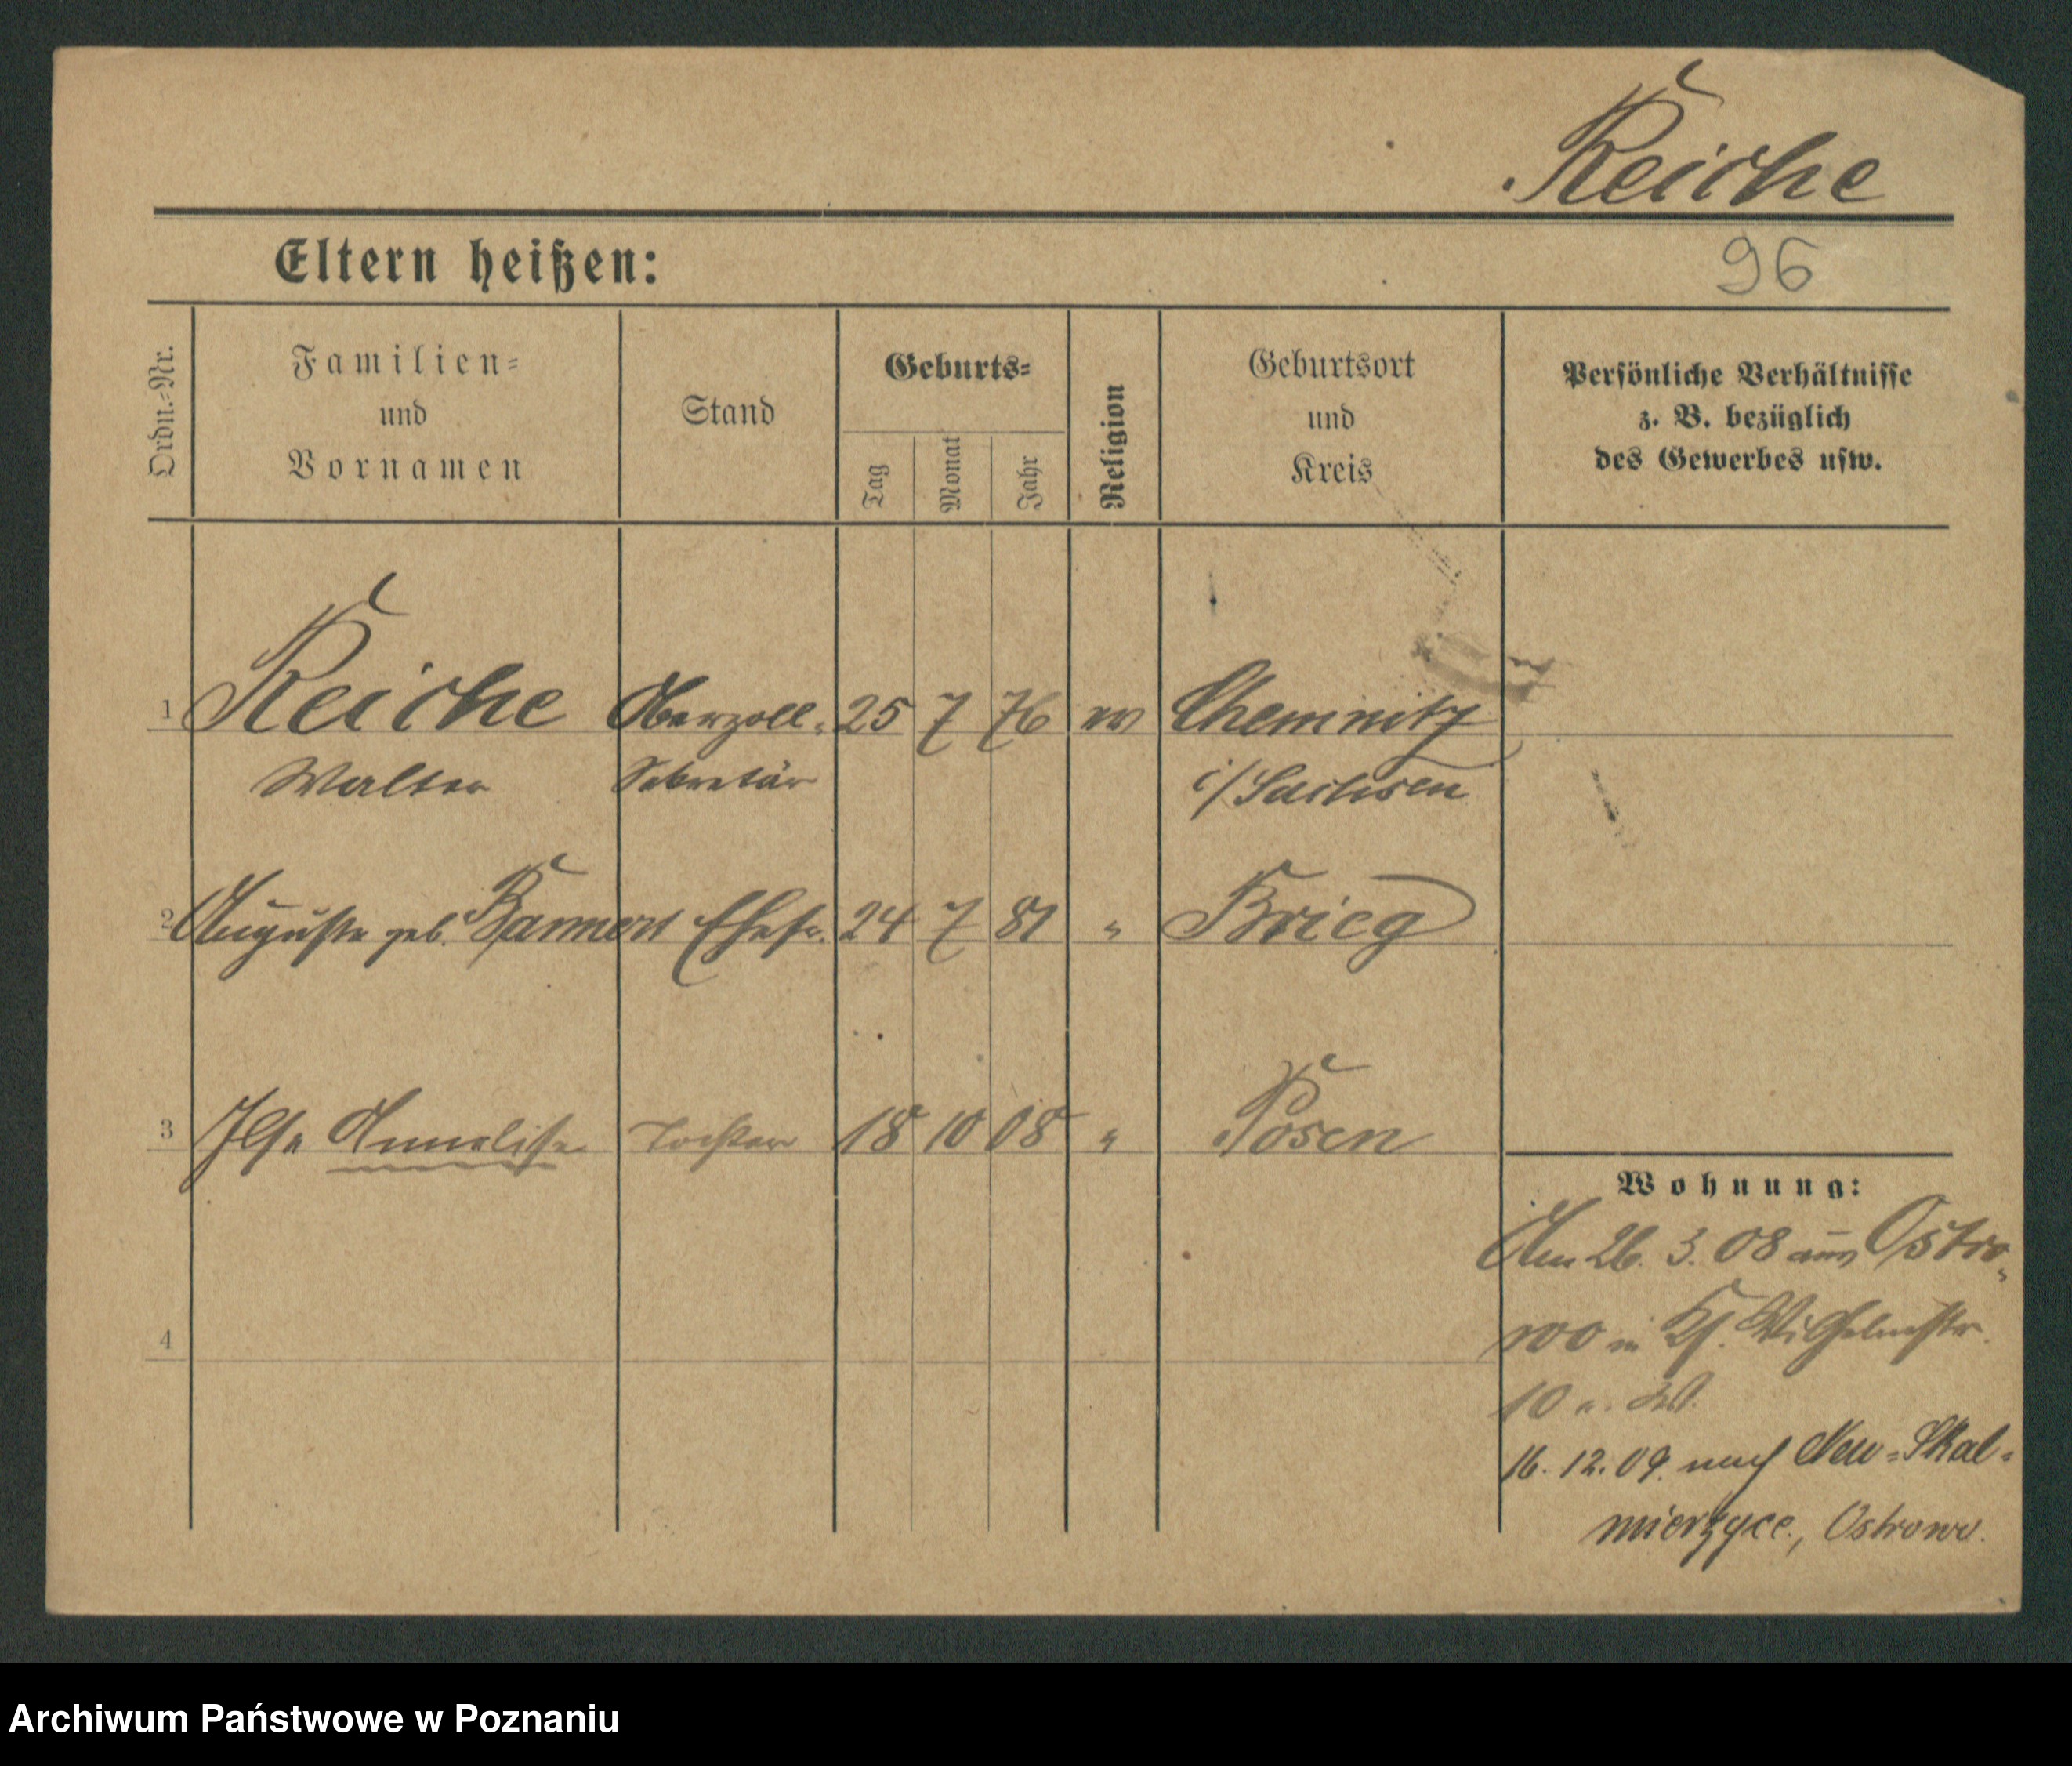 Reiche
Eltern heißen:
96
Ordn.-Nr.
Familien-
und
Vornamen
Stand
Geburts-
Tag
Monat
Jahr
Religion
Geburtsort
und
Kreis
Persönliche Verhältnisse
z. B. bezüglich
des Gewerbes usw.
1 Reiche Oberzoll- 25 7 76 ev Chemnitz
Walter Sekretär i/Sachsen
2 Auguste geb. Bannert Ehefr. 24 7 81 " Brieg
3 Ilse Anneliese Tochter 18 10 08 " Posen
Wohnung:
Am 26. 3. 08 aus Ostro-
wo in Kl. Wilhelmstr.
10
4
16. 12. 09. nach Neu-Skal-
mierzyce, Ostrowo.
Archiwum Państwowe w Poznaniu